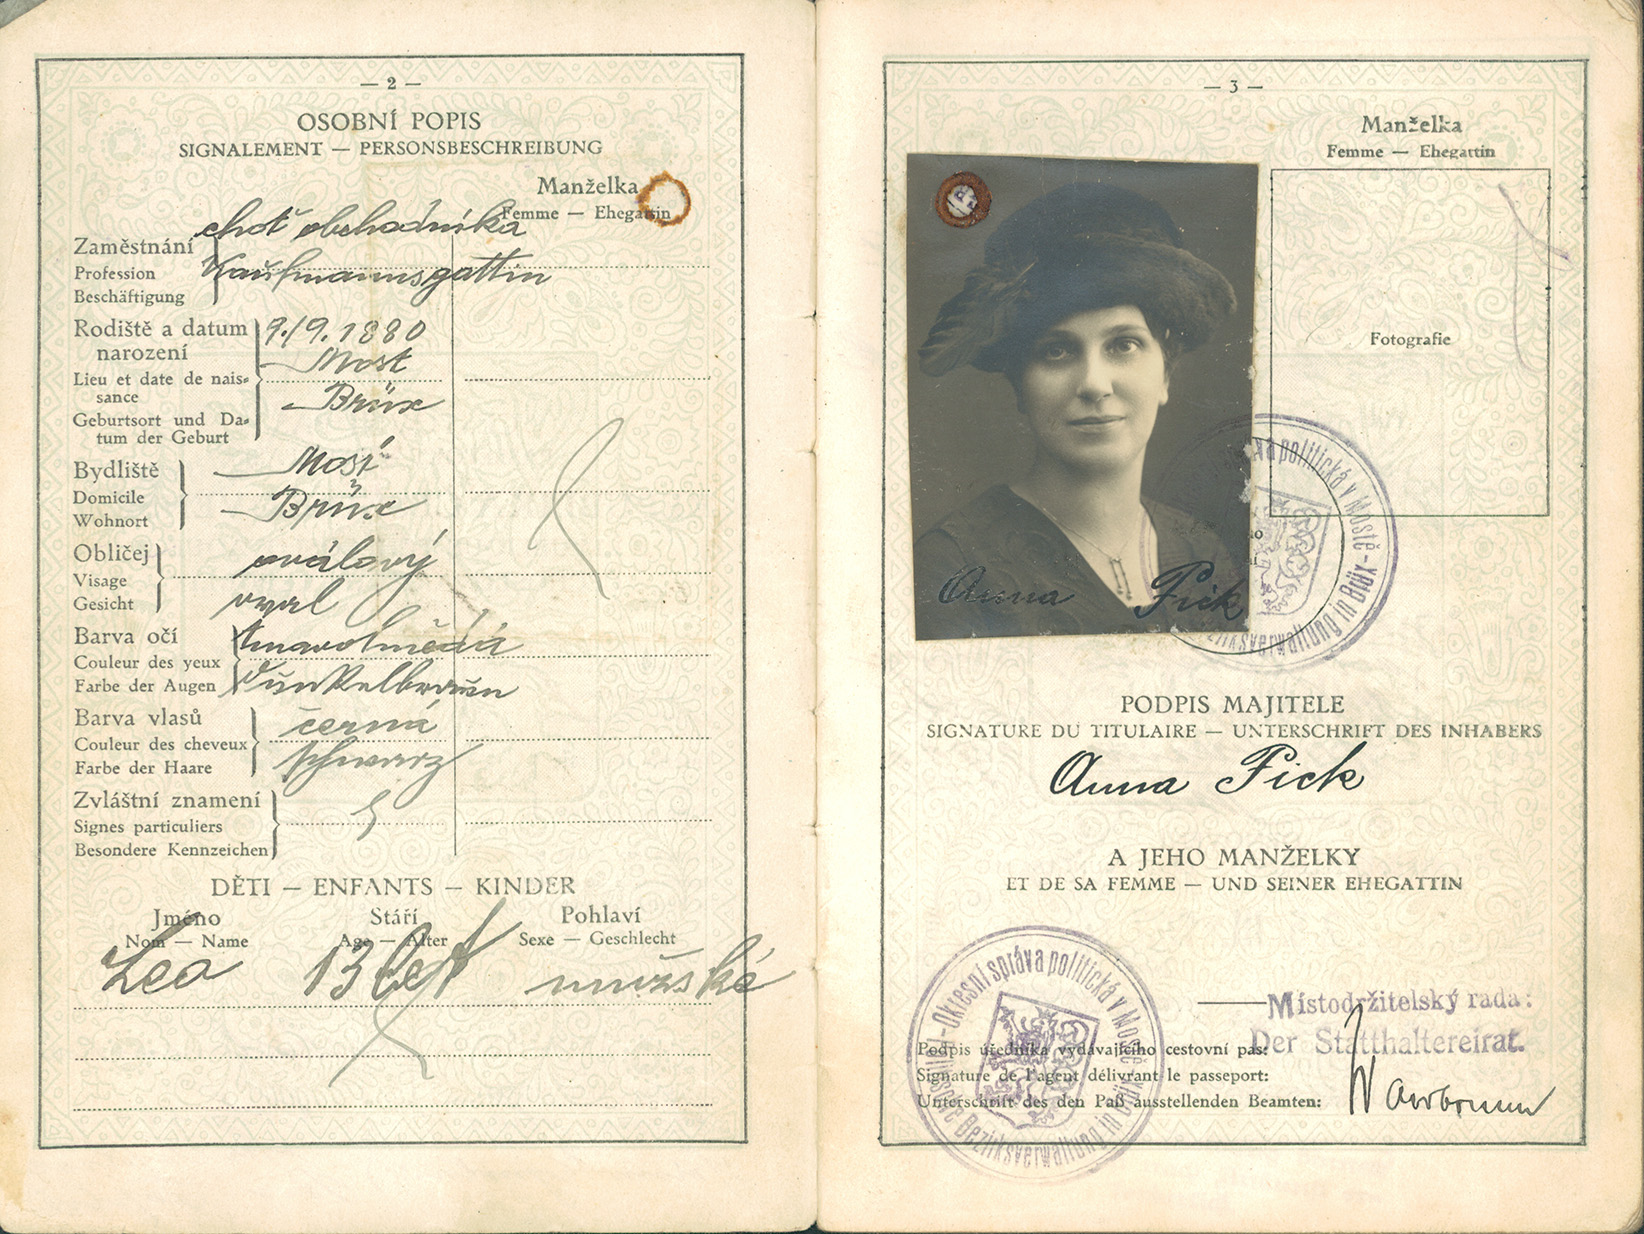 — 2 —
OSOBNÍ POPIS
SIGNALEMENT — PERSONSBESCHREIBUNG
Manželka
Femme — Ehegattin
choť obchodníka
Zaměstnání
Profession
Beschäftigung
Kaufmannsgattin
Rodiště a datum
narození
Lieu et date de nais=
sance
Geburtsort und Da=
tum der Geburt
9./9. 1880
Most
Brüx
Bydliště
Domicile
Wohnort
Most
Brüx
Obličej
Visage
Gesicht
oválový
oval
Barva očí
Couleur des yeux
Farbe der Augen
tmavohnědá
dunkelbraun
Barva vlasů
Couleur des cheveux
Farbe der Haare
černá
schwarz
Zvláštní znamení
Signes particuliers
Besondere Kennzeichen
DĚTI — ENFANTS — KINDER
Jméno Stáří Pohlaví
Nom — Name Age — Alter Sexe — Geschlecht
Leo 13 let mužské
— 3 —
Manželka
Femme — Ehegattin
Fotografie
Anna Pick
politická v Mostě - Bezirksverwaltung in Brüx
PODPIS MAJITELE
SIGNATURE DU TITULAIRE — UNTERSCHRIFT DES INHABERS
Anna Pick
A JEHO MANŽELKY
ET DE SA FEMME — UND SEINER EHEGATTIN
Okresní správa politická v Mostě - Politische Bezirksverwaltung in Brüx
Místodržitelský rada:
Der Statthaltereirat.
Podpis úředníka vydávajícího cestovní pas:
Signature de l'agent délivrant le passeport:
Unterschrift des den Paß ausstellenden Beamten: